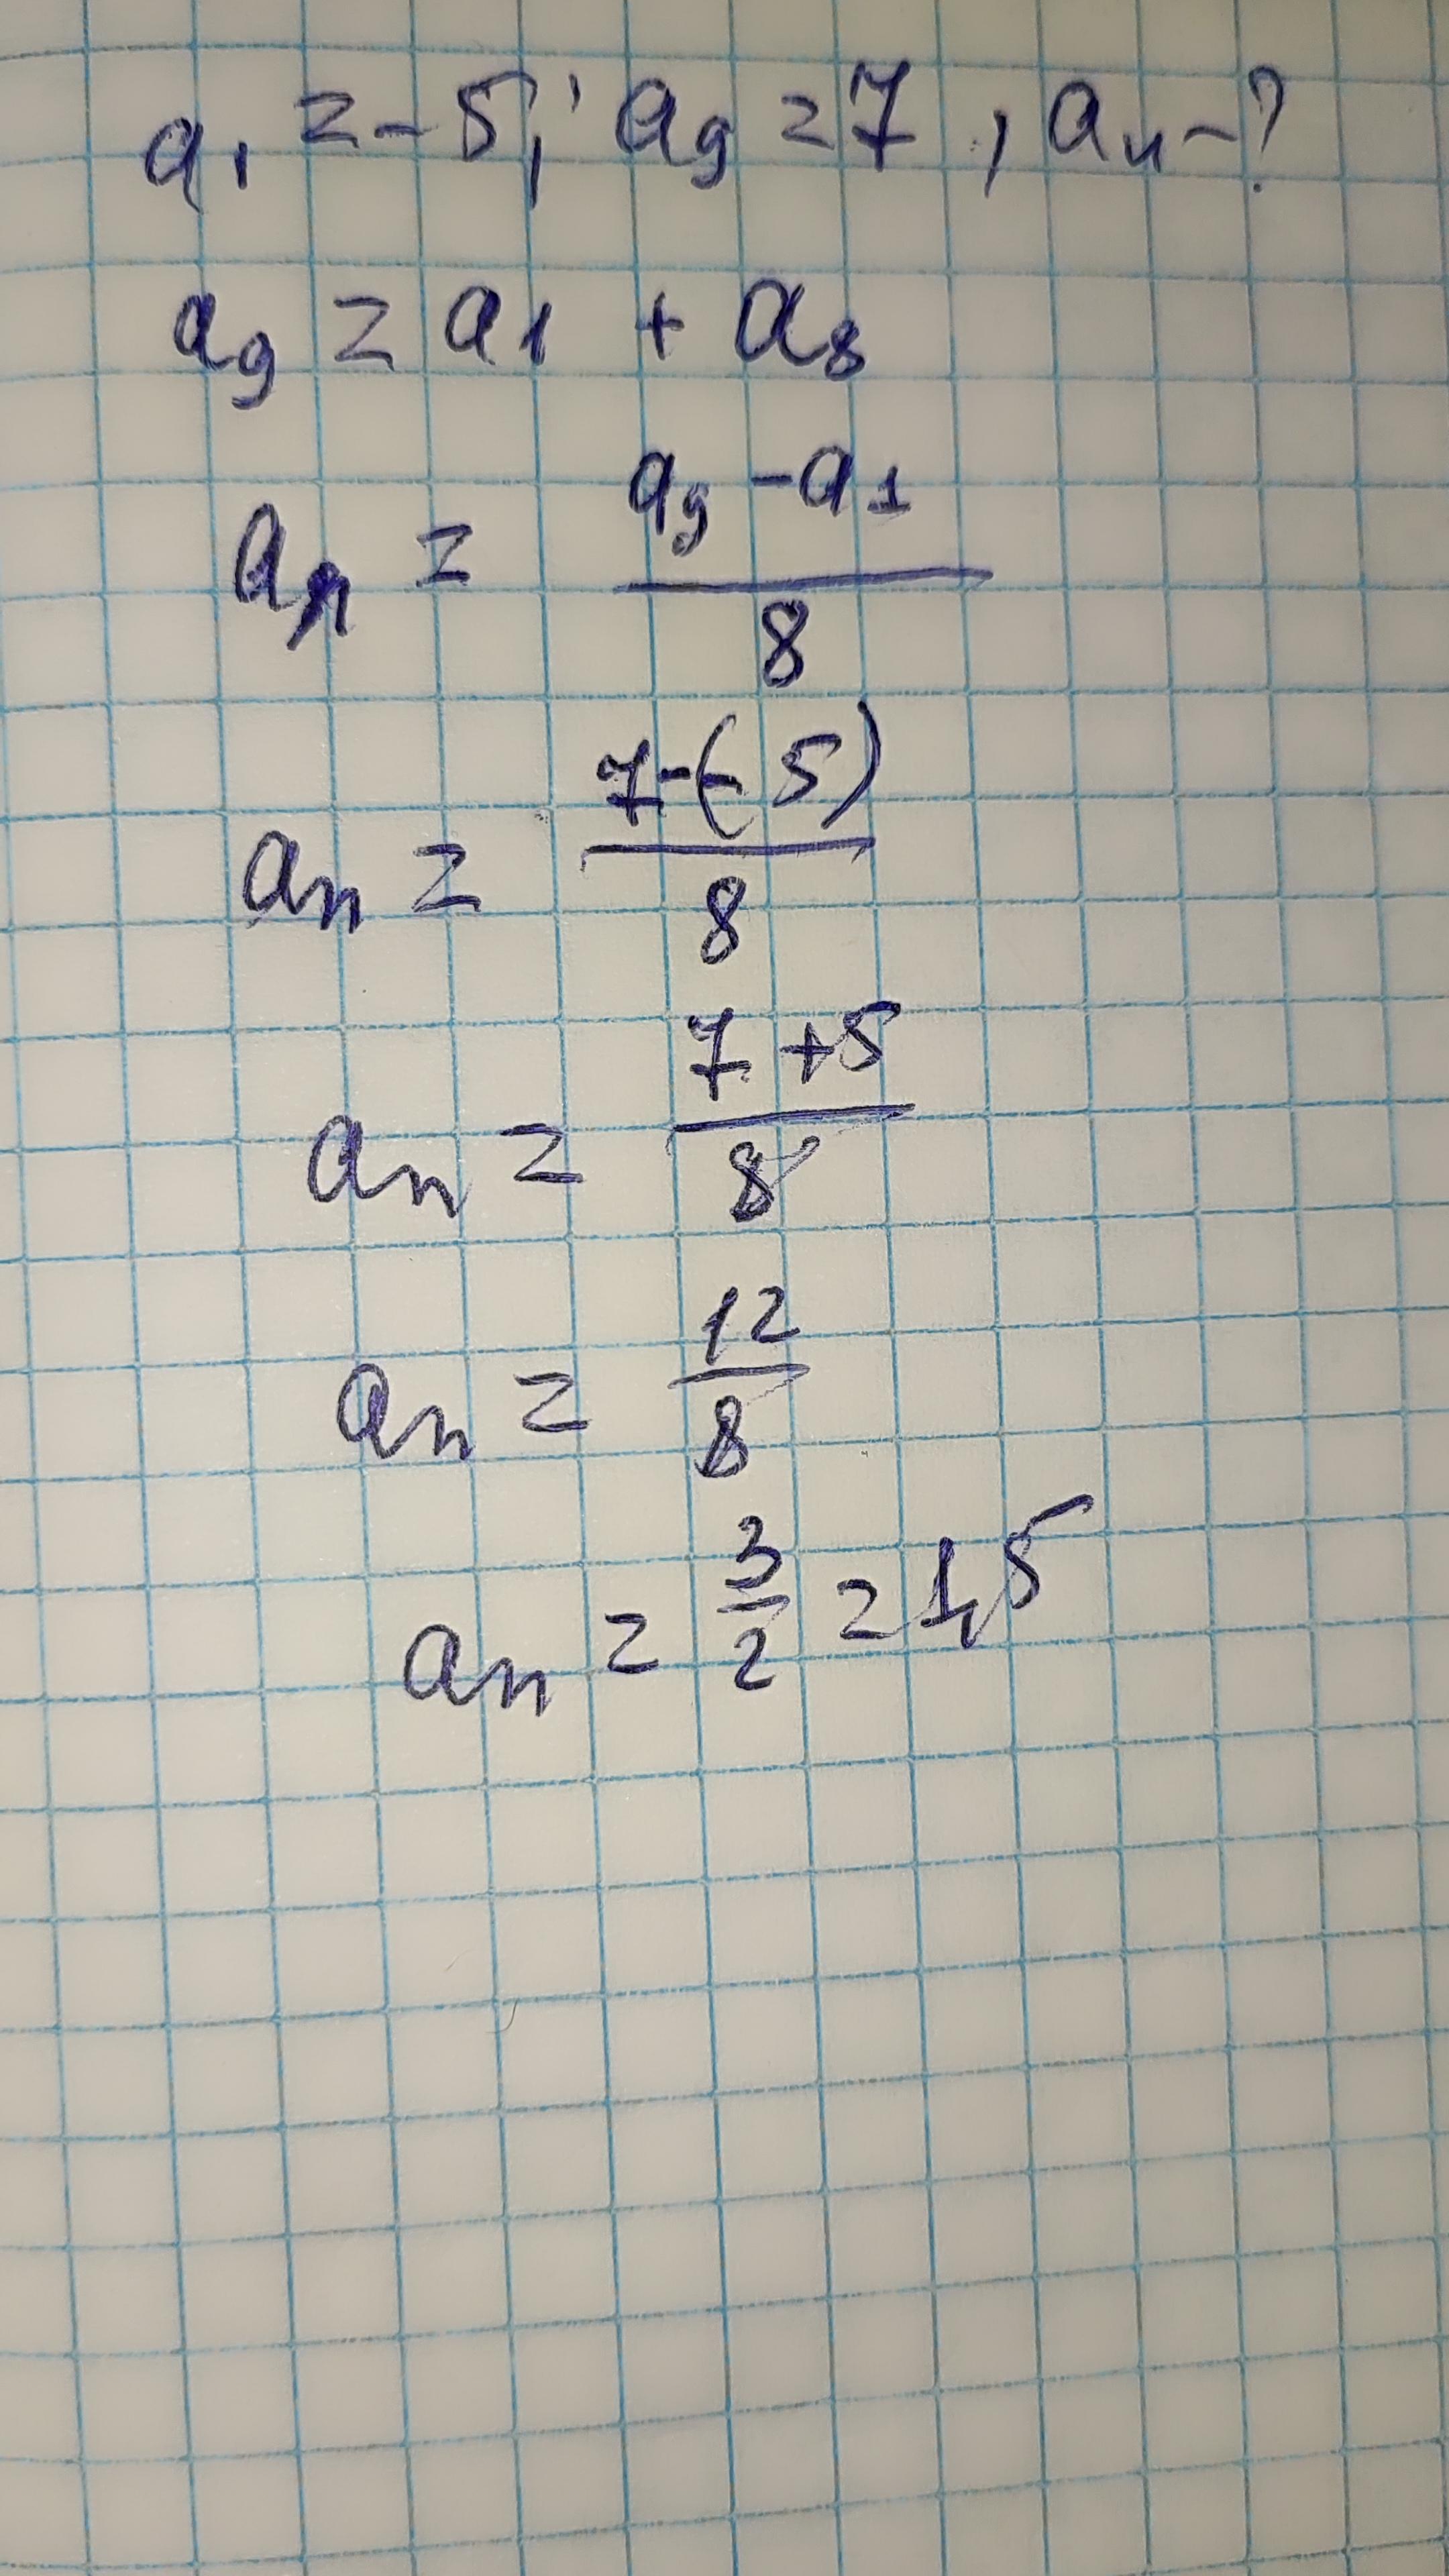 a₁ = -5; a₉ = 7, aₙ - ?
a₉ = a₁ + a₈
aₙ = (a₉ - a₁)/8
aₙ = (7-(-5))/8
aₙ = (7+5)/8
aₙ = 12/8
aₙ = 3/2 = 1,5